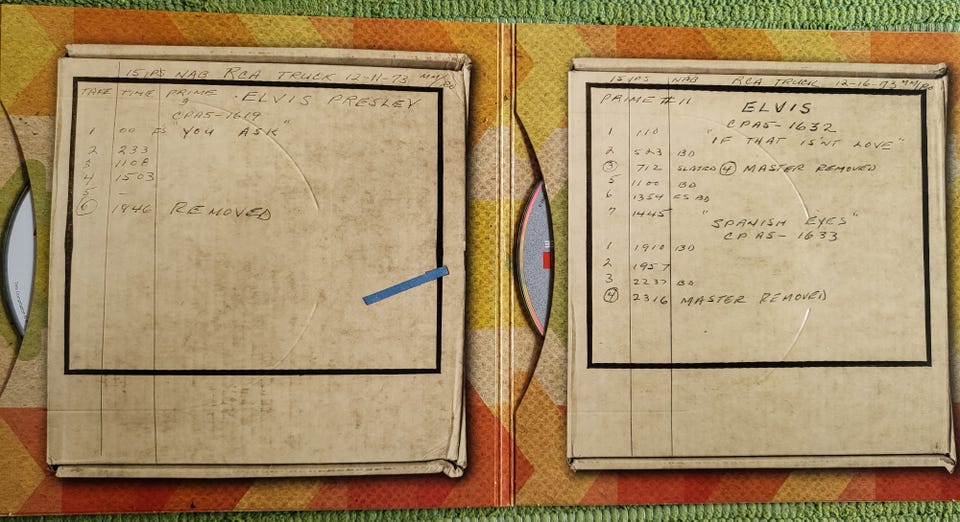 15 IPS NAB RCA TRUCK 12-11-73 MM/RO
TAKE TIME PRIME ELVIS PRESLEY
9
CPA5-1619
1 00 FS "YOU ASK"
2 233
3 1108
4 1503
5 -
6 1946 REMOVED
15 IPS NAB RCA TRUCK 12-16-73 MM/RO
PRIME #11 ELVIS
CPA5-1632
1 110 "IF THAT IS'NT LOVE"
2 523 BD
3 712 SLATED 4 MASTER REMOVED
5 1100 BD
6 1354 FS BD
7 1445 "SPANISH EYES"
CPA5-1633
1 1910 BD
2 1957
3 2237 BD
4 2316 MASTER REMOVED